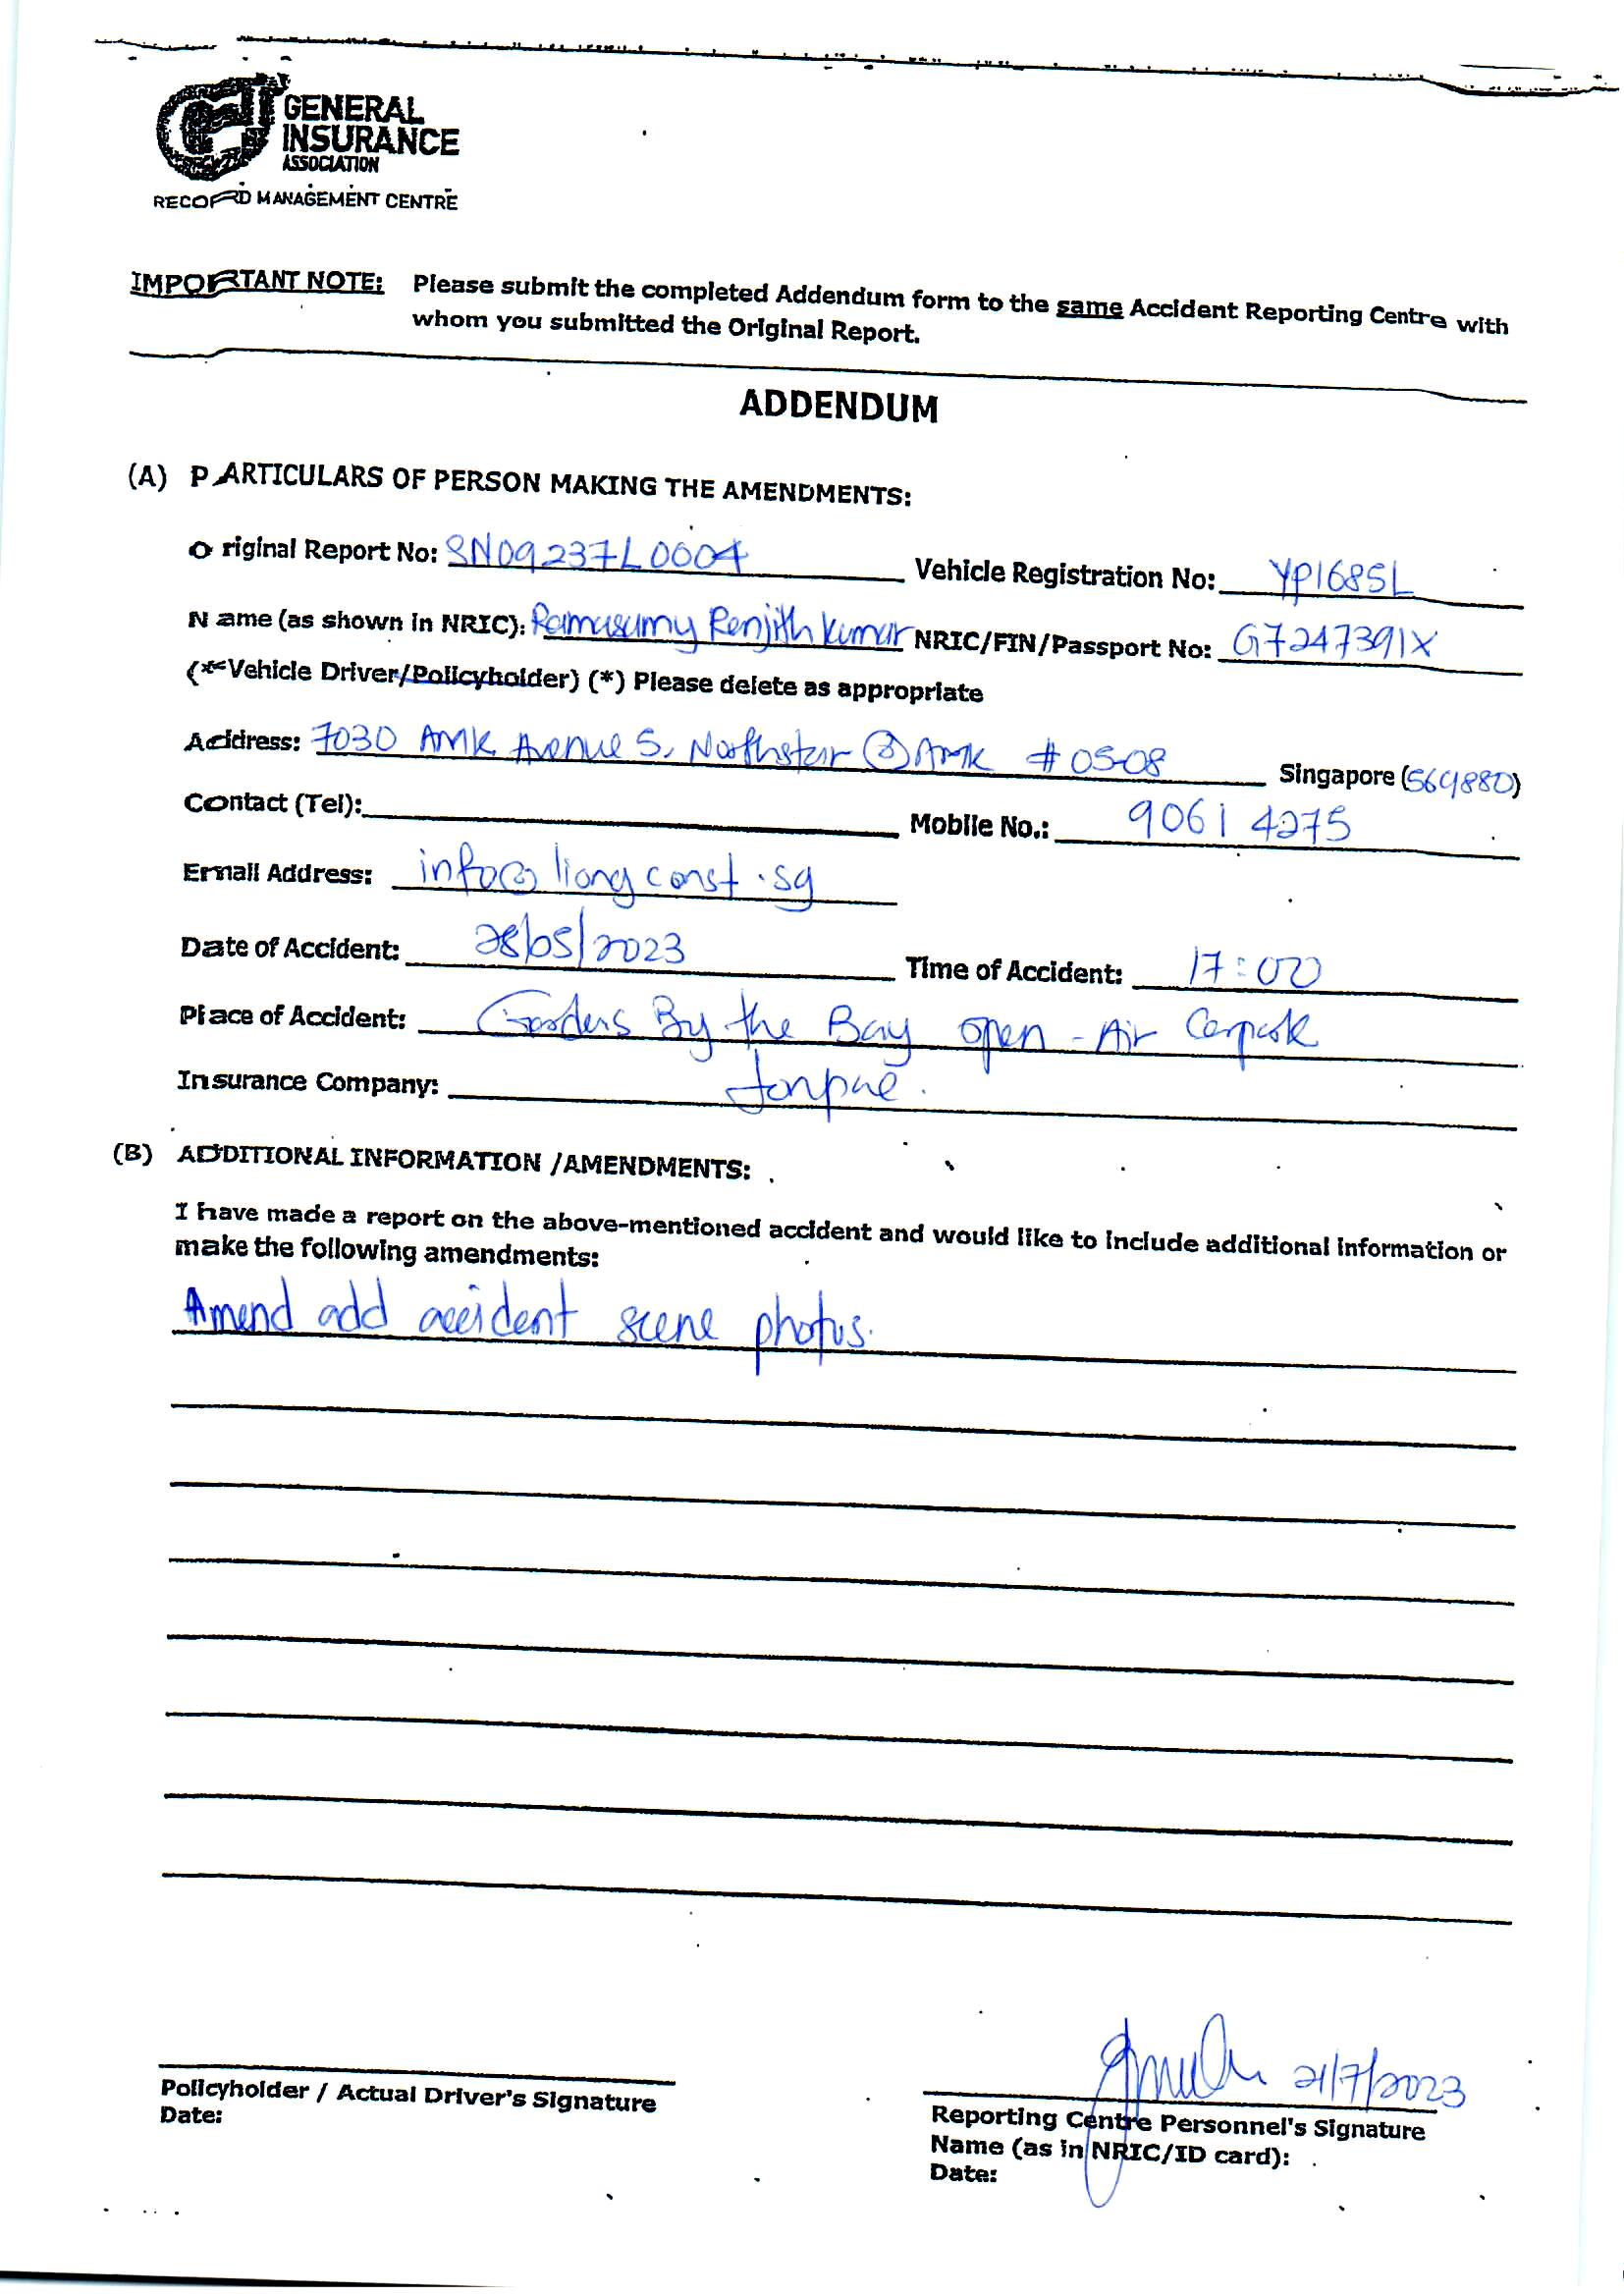 GENERAL
INSURANCE
ASSOCIATION
RECORD MANAGEMENT CENTRE
IMPORTANT NOTE: Please submit the completed Addendum form to the same Accident Reporting Centre with
whom you submitted the Original Report.
ADDENDUM
(A) PARTICULARS OF PERSON MAKING THE AMENDMENTS:
Original Report No: SN09237L0004 Vehicle Registration No: YP1685L
Name (as shown in NRIC): Ramasamy Renjith kumar NRIC/FIN/Passport No: G7247391X
(*Vehicle Driver/Policyholder) (*) Please delete as appropriate
Address: 7030 AMK Avenue 5, Northstar @ AMK #05-08 Singapore (569880)
Contact (Tel): Mobile No.: 9061 4275
Email Address: info@liongconst.sg
Date of Accident: 28/05/2023 Time of Accident: 17:00
Place of Accident: Gardens By the Bay open-Air Carpark
Insurance Company:
(B) ADDITIONAL INFORMATION /AMENDMENTS:
I have made a report on the above-mentioned accident and would like to include additional information or
make the following amendments:
Amend add accident scene photos.
21/7/2023
Policyholder / Actual Driver's Signature
Date:
Reporting Centre Personnel's Signature
Name (as in NRIC/ID card):
Date: